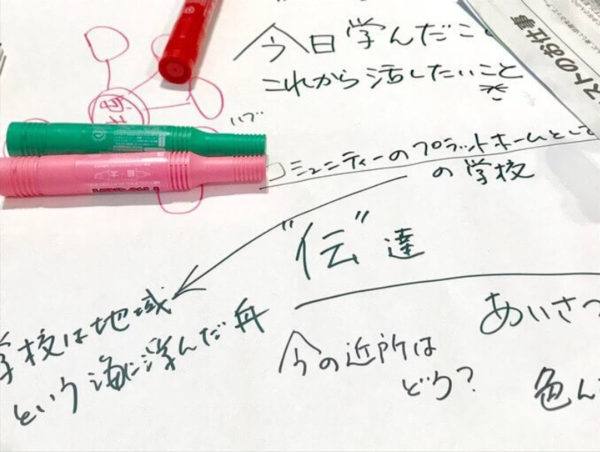 今日学んだこ
これから活したいこと
ストのお仕事
ミュニティーのプラットホームとして
の学校
"伝"達
学校は地域
という海に浮んだ舟
あいさつ
今の近所は
どう?
色ん